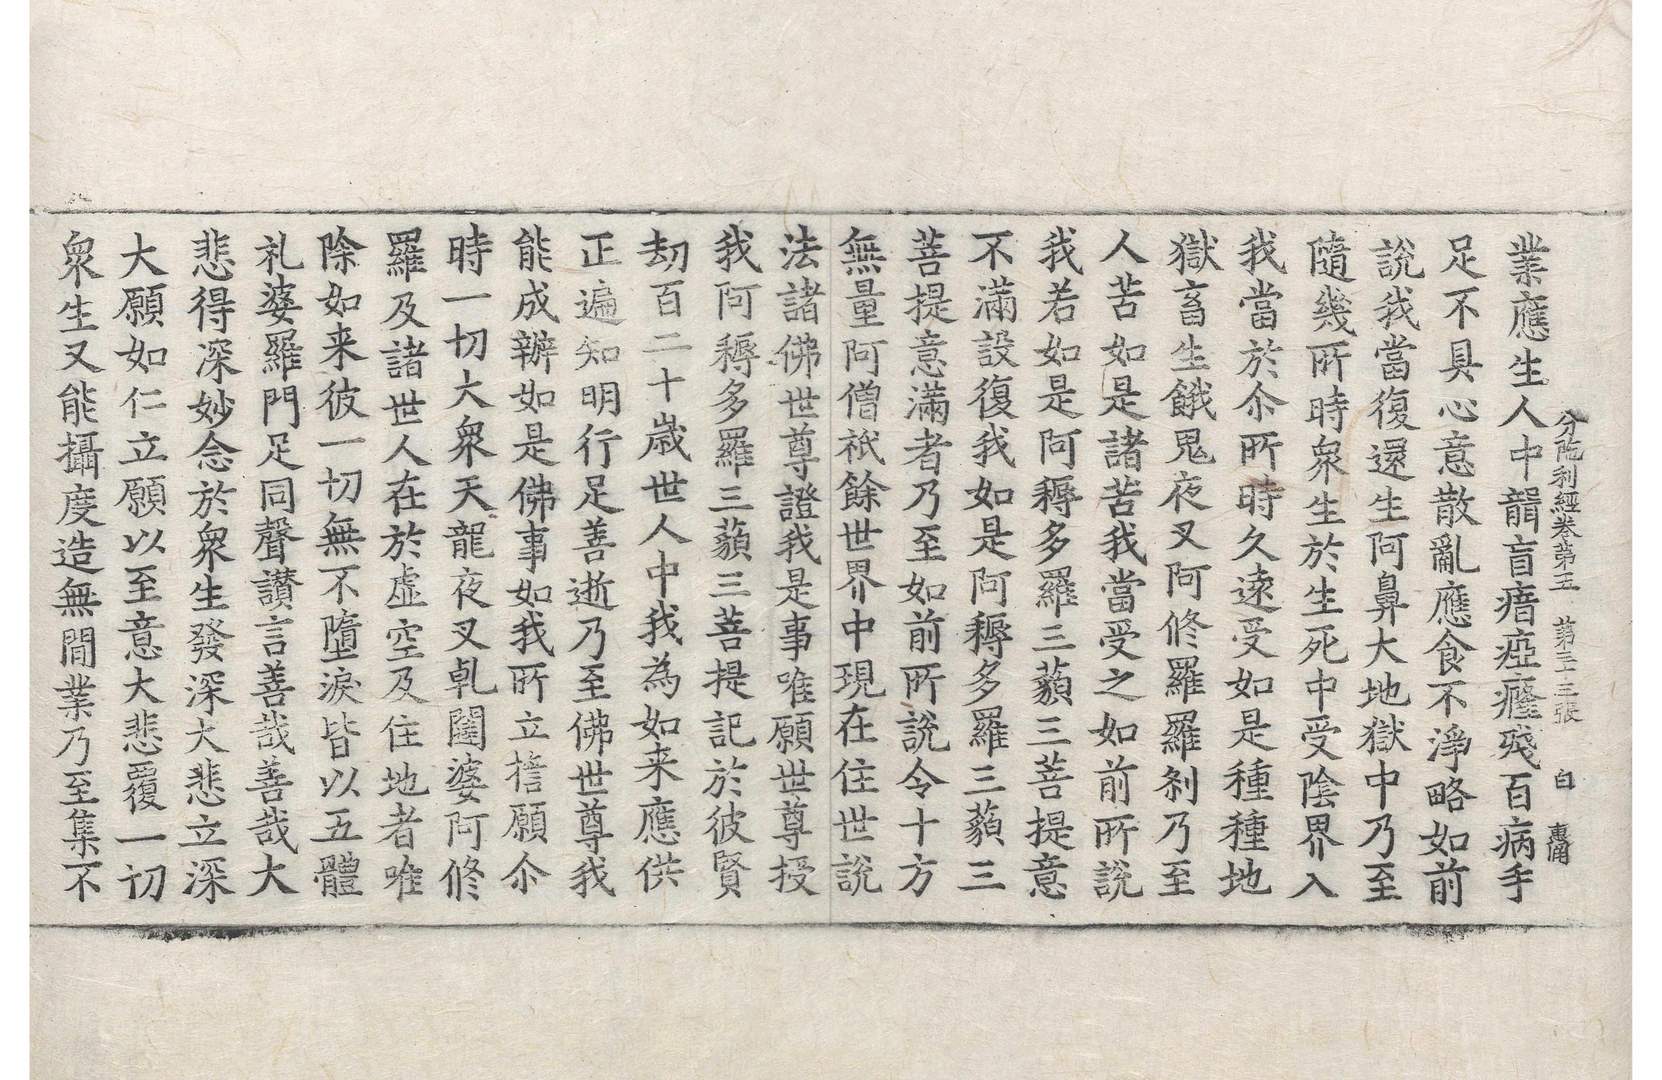 分陁利經卷第五 第三十三張 白
業應生人中聾盲瘖瘂癃殘百病手
足不具心意散亂應食不淨略如前
說我當復還生阿鼻大地獄中乃至
隨幾所時衆生於生死中受陰界入
我當於尒所時久遠受如是種種地
獄畜生餓鬼夜叉阿修羅羅剎乃至
人苦如是諸苦我當受之如前所說
我若如是阿耨多羅三藐三菩提意
不滿設復我如是阿耨多羅三藐三
菩提意滿者乃至如前所說令十方
無量阿僧祇餘世界中現在住世說
法諸佛世尊證我是事唯願世尊授
我阿耨多羅三藐三菩提記於彼賢
劫百二十歲世人中我為如来應供
正遍知明行足善逝乃至佛世尊我
能成辦如是佛事如我所立擔願尒
時一切大衆天龍夜叉乹闥婆阿修
羅及諸世人在於虛空及住地者唯
除如来彼一切無不墮淚皆以五體
礼婆羅門足同聲讃言善哉善哉大
悲得深妙念於衆生發深大悲立深
大願如仁立願以至意大悲覆一切
衆生又能攝度造無閒業乃至集不